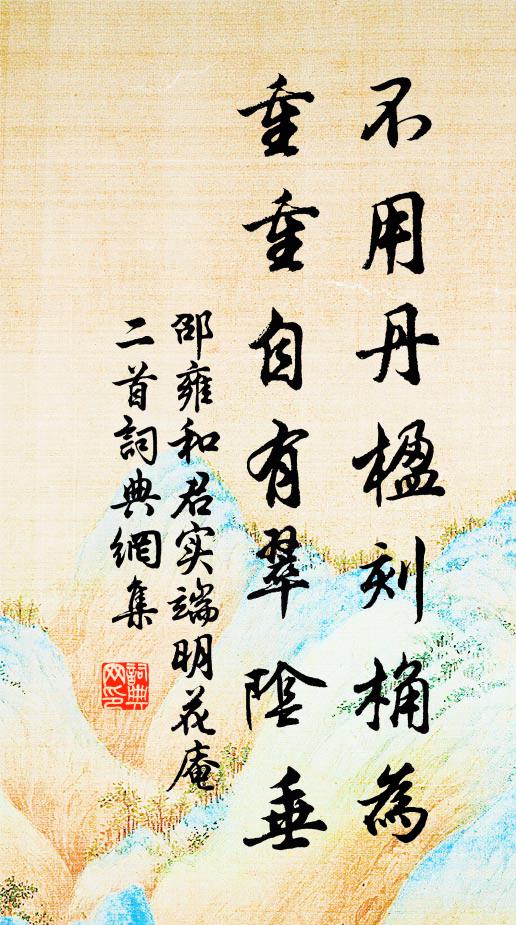 不用丹楹刻桷為
重重自有翠陰垂
邵雍和君实端明花庵
二首詞典網集
詞典网印